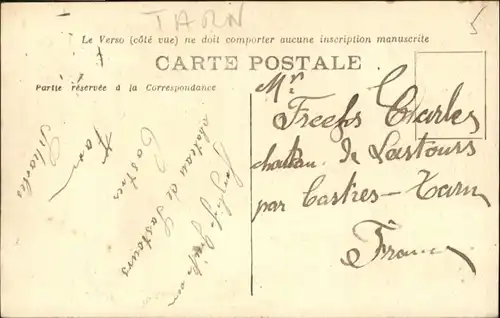 TARN
Le Verso (côté vue) ne doit comporter aucune inscription manuscrite
CARTE POSTALE
Partie réservée à la Correspondance
château de Lastours
Castres
Tarn
Charles
Mr
Freefs Charles
chateau de Lastours
par Castres - Tarn
France